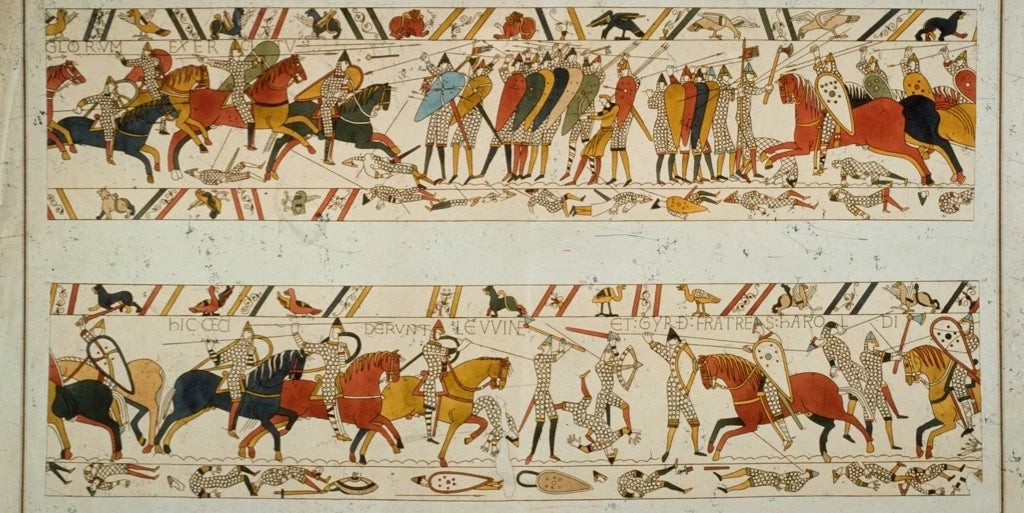 GLORVM EXER
hIC CECI DERVNT LEVVINE ET: GYRÐ: FRATRES: hAROLDI